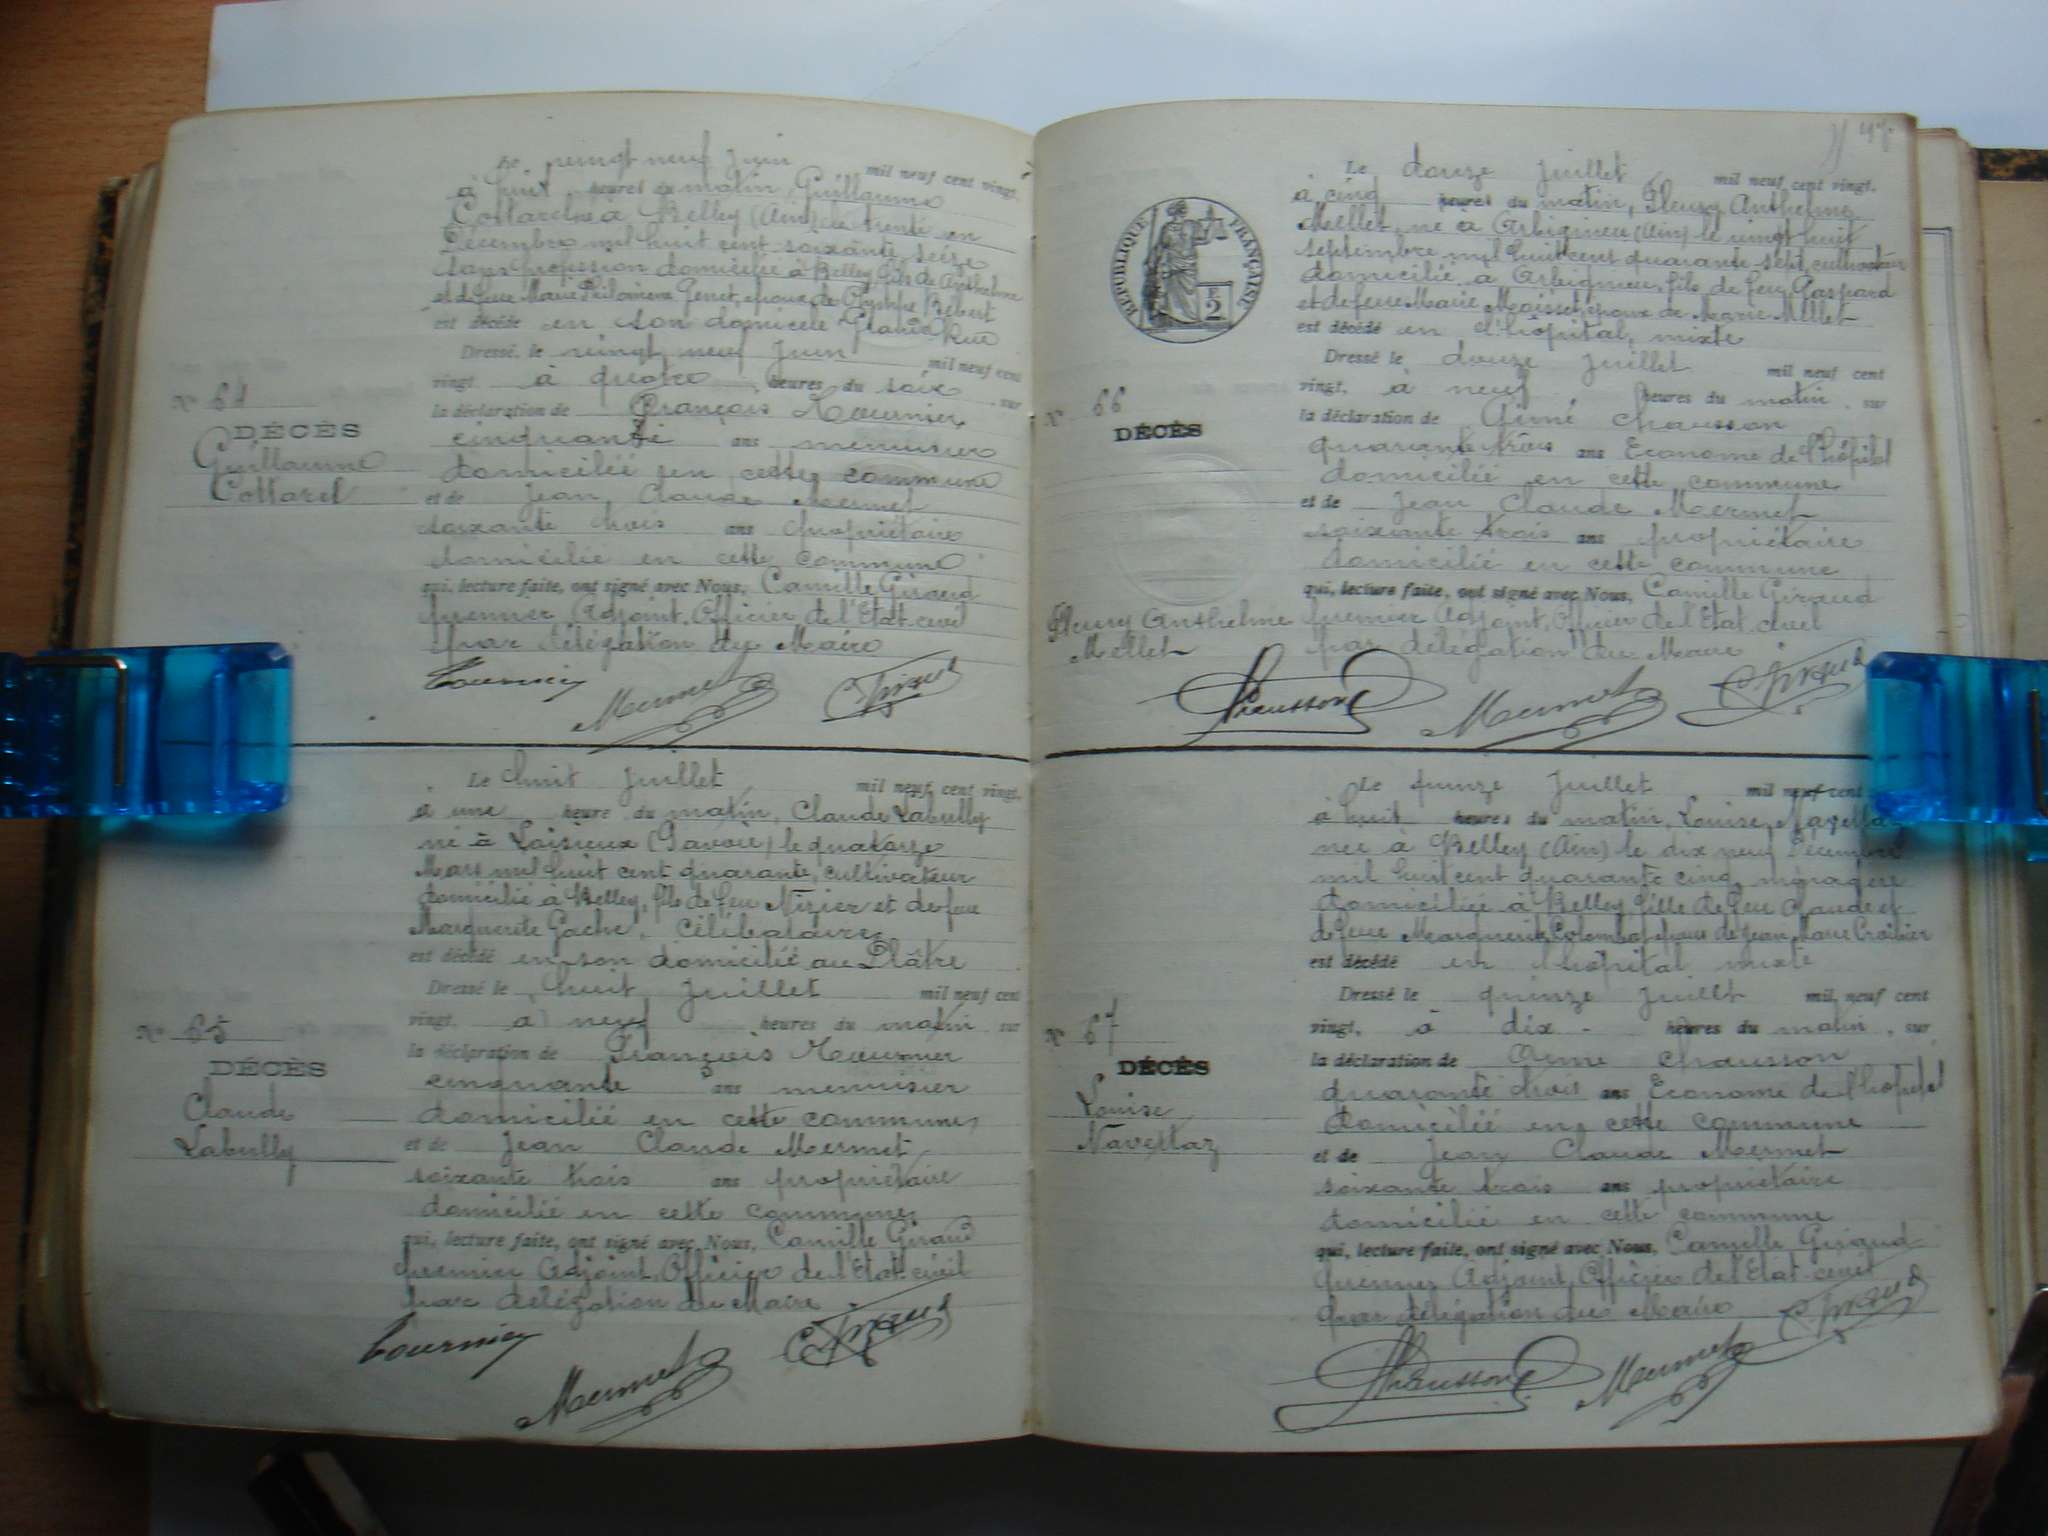 Le vingt neuf Juin mil neuf cent vingt,
à huit heures du matin, Guillaume
Collarel né à Belley (Ain) le trente en
Décembre mil huit cent soixante seize
sans profession domicilié à Belley, fils de Anthelme
et de feue Marie Philomène Genet, époux de Olympe Bébert
est décédé en son domicile Grande Rue
Dressé, le vingt neuf Juin mil neuf cent
vingt à quatre heures du soir, sur
la déclaration de François Tournier
cinquante ans menuisier
domicilié en cette commune
et de Jean Claude Mermet
soixante trois ans propriétaire
domicilié en cette commune
qui, lecture faite, ont signé avec Nous, Camille Giraud
premier Adjoint, Officier de l'Etat-civil
par délégation du Maire
Nº 64
DÉCÈS
Guillaume
Collarel
Tournier Mermet C. Giraud
Le huit Juillet mil neuf cent vingt,
à une heure du matin, Claude Labully
né à Loisieux (Savoie) le quatorze
Mars mil huit cent quarante, cultivateur
domicilié à Belley, fils de feu Nizier et de feue
Marguerite Gache, célibataire
est décédé en son domicilié au Plâtre
Dressé le huit Juillet mil neuf cent
vingt, à neuf heures du matin, sur
la déclaration de François Tournier
cinquante ans menuisier
domicilié en cette commune
et de Jean Claude Mermet
soixante trois ans propriétaire
domicilié en cette commune
qui, lecture faite, ont signé avec Nous, Camille Giraud
premier Adjoint, Officier de l'Etat-civil
par délégation du Maire
Nº 65
DÉCÈS
Claude
Labully
Tournier Mermet C. Giraud
RÉPUBLIQUE FRANÇAISE
2
Le douze Juillet mil neuf cent vingt,
à cinq heures du matin, Fleury Anthelme
Mellet, né à Arbignieu (Ain) le vingt huit
septembre mil huit cent quarante sept, cultivateur
domicilié à Arbignieu, fils de feu Gaspard
et de feue Marie Moisset, époux de Marie Mellet
est décédé en l'hôpital mixte
Dressé le douze Juillet mil neuf cent
vingt, à neuf heures du matin, sur
la déclaration de Aimé Chausson
quarante trois ans Econome de l'hôpital
domicilié en cette commune
et de Jean Claude Mermet
soixante trois ans propriétaire
domicilié en cette commune
qui, lecture faite, ont signé avec Nous, Camille Giraud
premier Adjoint, Officier de l'Etat-civil
par délégation du Maire
Nº 66
DÉCÈS
Fleury Anthelme
Mellet
Chausson Mermet C. Giraud
Le quinze Juillet mil neuf cent
à huit heures du matin, Louise
née à Belley (Ain) le dix neuf Décembre
mil huit cent quarante cinq, ménagère
domiciliée à Belley, fille de feu Claude et
de feue Marguerite Colomb, épouse de Jean Marie Croibier
est décédé en l'hôpital mixte
Dressé le quinze Juillet mil neuf cent
vingt, à dix heures du matin, sur
la déclaration de Aimé Chausson
quarante trois ans Econome de l'hôpital
domicilié en cette commune
et de Jean Claude Mermet
soixante trois ans propriétaire
domicilié en cette commune
qui, lecture faite, ont signé avec Nous, Camille Giraud
premier Adjoint, Officier de l'Etat-civil
par délégation du Maire
Nº 67
DÉCÈS
Louise
Chausson Mermet C. Giraud